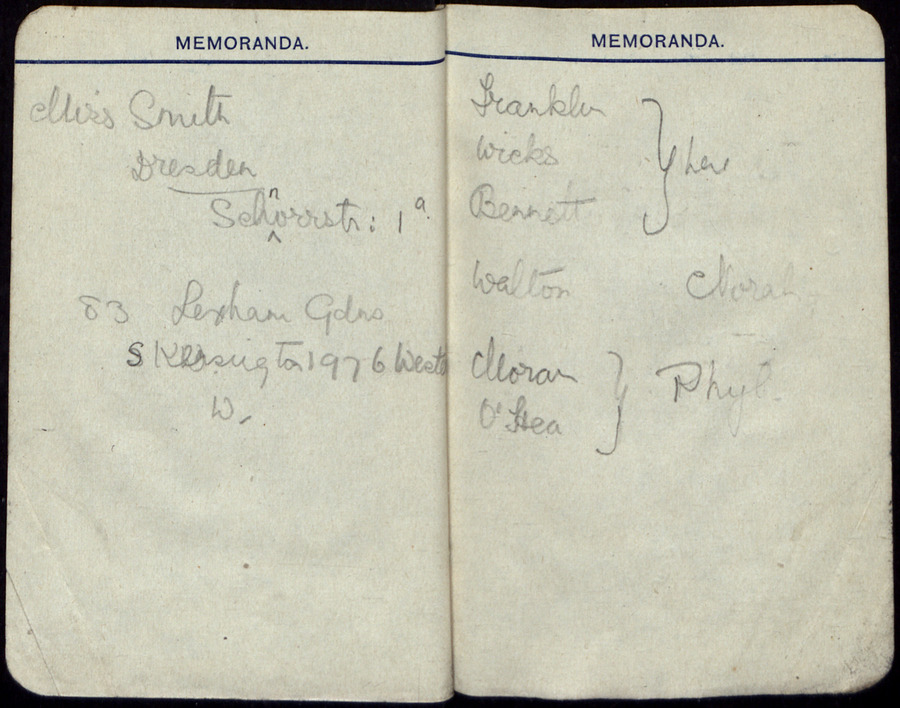 MEMORANDA.
Miss Smith
Dresden
Schnorrstr: 1a.
83 Lexham Gdns
S Kensington 1976 West
W.
MEMORANDA.
Franklin
Wicks
Bennett
Walton Norah
Moran
O'Hea } Phyl.